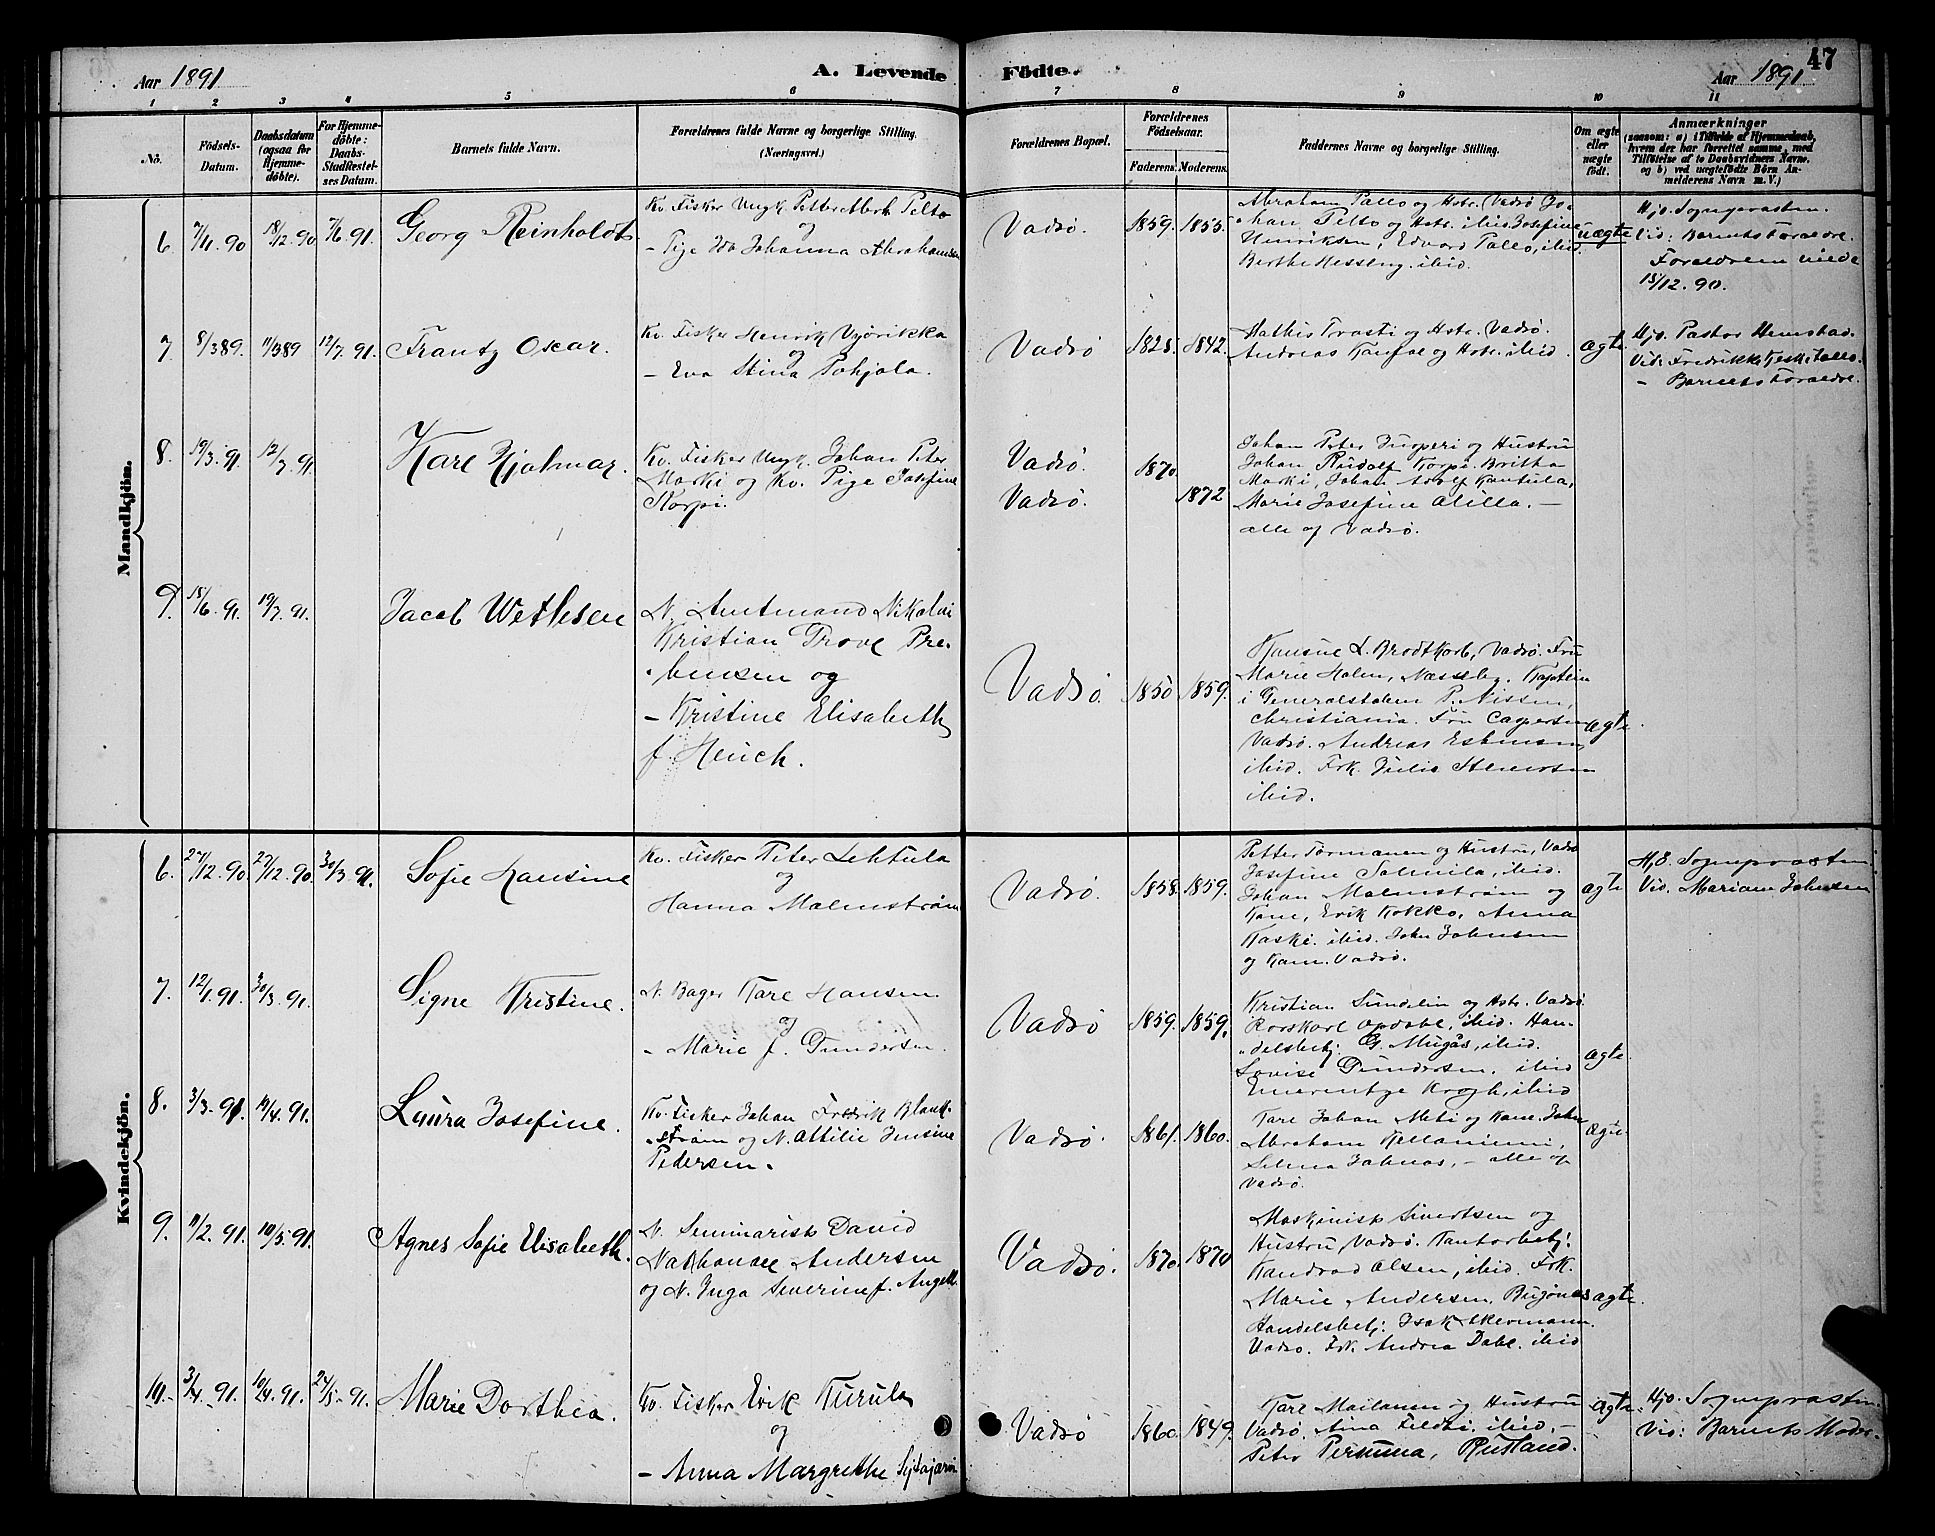 Aar 1891
A. Levende
Födte.
Aar 1891
47
1 2 3 4 5 6 7 8 9 10 11
Nö.
Födsels-
Datum.
Daabsdatum
(ogsaa for
Hjemme-
döbte).
For Hjemme-
döbte:
Daabs-
Stadfæstel-
ses Datum.
Barnets fulde Navn.
Forældrenes fulde Navne og borgerlige Stilling.
(Næringsvei.)
Forældrenes Bopæl.
Forældrenes
Födselsaar.
Faderens.
Moderens.
Faddernes Navne og borgerlige Stilling.
Om ægte
eller
uægte
födt.
Anmærkninger
(saasom: a) i Tilfælde af Hjemmedaab,
hvem der har forrettet samme, med
Tilföielse af to Daabsvidners Navne,
og b) ved uægtefödte Börn An-
melderens Navn m. V.)
Mandkjön.
6. 7/11 90 18/12 90 7/6 91. Georg Reinholdt
Kv. Fisker Ungk. Petter Abrh. Pelto
og
- Pige Ida Johanna Abrahamsen
Vadsø. 1859. 1855.
Abraham Pallo og Hstr. Vadsø Jo-
han Pelto og Hstr. ibid. Josefine
Henriksen, Edvard Pallo, ibid.
Berthe Hesseng. ibid.
uægte
Hjd. Sogneprasten.
Vid: Barnets Foraldre.
Foraldrene viede
15/12. 90.
7. 8/3 89. 11/3 89 12/7. 91. Frantz Oscar.
Kv. Fisker Henrik
og
- Eva Stina Pohjola.
Vadsø 1828. 1842.
Mathis Trasti og Hstr. Vadsø.
Andreas og Hstr. ibid.
ægte
Hjd. Pastor
Vid: Fredrikke
- Barnets Foraldre.
8. 19/3. 91. 12/7. 91. Karl Hjalmar.
Kv. Fisker Ungk. Johan Peter
Marki og Kv. Pige Josefine
Korpi.
Vadsø.
Vadsø.
1870. 1872
Johan Peter Junperi og Hustru
Johan Rudolf Korpi. Britha
Marki, Johan Adolf Kantula,
Marie Josefine Alilla. —
alle af Vadsø.
9. 18/6. 91. 19/7. 91. Jacob Wethesen
N. Amtmand Nikolai
Kristian Grove Pre-
-bensen og
- Kristine Elisabeth
f. Heuch.
Vadsø 1850 1859.
Konsul L. Brodtkorb, Vadsø. Fru
Marie Holm, Næsseby. Kaptein
i Generalstaben P. Nissen,
Christiania. Fru Caspersen
Vadsø. Andreas Esbensen
ibid. Frk. Julie Steensen
ibid.
ægte.
Kvindekjön.
6. 27/12. 90. 30/3. 91. Sofie Hansine
Kv. Fisker Peter Lehtula
og
Hanna Malmstrøm
Vadsø. 1858. 1859.
Petter Tormanen og Hustru, Vadsø
Josefine ibid.
Johan Malmstrøm og
Kone, Erik Kokko. Anna
Kaski. ibid. John Johnsen
og Kone. Vadsø.
ægte
Hjd. Sogneprasten
Vid. Mariane Johnsen
7. 12/1. 91. 30/3. 91. Signe Kristine.
N. Bager Karl Hansen
og
- Marie f. Gundersen.
Vadsø 1859. 1859.
Kristian Sundelin og Hstr. Vadsø.
Rorskarl Opdahl, ibid. Han-
-delsbetj. G. Mugås, ibid.
Lovise Gundersen. ibid
Emerentze Krogh, ibid
ægte.
8. 3/3. 91. 19/4. 91. Laura Josefine.
Kv. Fisker Johan Fredrik Blank-
-strøm og N. Attilie Jensine
Pedersen.
Vadsø. 1861. 1860.
Karl Johan Meti og Kone. John
Abraham Kellaniemi,
Selma Johnas, — alle af
Vadsø.
ægte
9. 11/2. 91. 10/5. 91. Agnes Sofie Elisabeth.
N. Seminarist David
Nathanael Andersen
og N. Inga Severine f. Angell.
Vadsø. 1870. 1870
Maskinist Sivertsen og
Hustru, Vadsø. Kontorbetj.
Kondrad Olsen, ibid. Frk.
Marie Andersen, Bugønæs
Handelsbetj: Isak Akermann.
Vadsø. Frk. Andrea Dahl. ibid
ægte.
10. 3/4. 91. 10/4. 91. 24/5. 91. Marie Dorthea.
Kv. Fisker Erik Kurula
og
- Anna Margrethe
Vadsø 1860. 1849.
Karl Mailanen og Hustru
Vadsø. Aina ibid. —
Peter Persuma, Rusland.
ægte.
Hjd. Sogneprasten.
Vid: Barnets Moder.